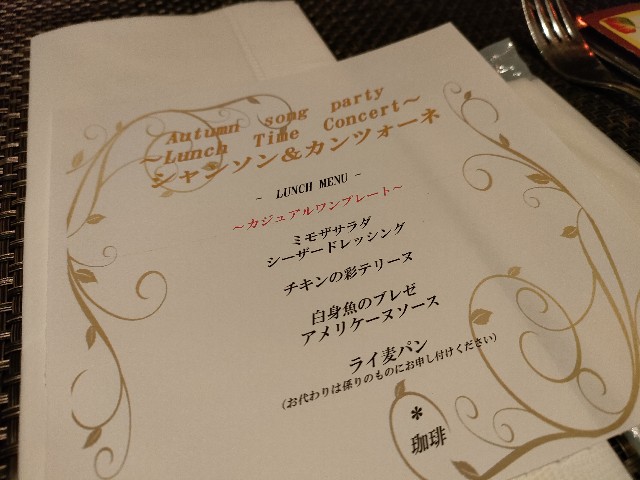 Autumn song party
～Lunch Time Concert～
シャンソン&カンツォーネ
~ LUNCH MENU ~
～カジュアルワンプレート～
ミモザサラダ
シーザードレッシング
チキンの彩テリーヌ
白身魚のブレゼ
アメリケーヌソース
ライ麦パン
(お代わりは係りのものにお申し付けください)
*
珈琲